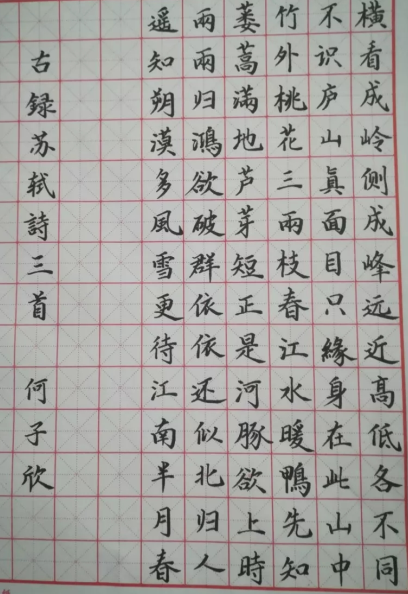 横看成岭侧成峰远近高低各不同
不识庐山眞面目只緣身在此山中
竹外桃花三兩枝春江水暖鴨先知
蒌蒿滿地芦芽短正是河豚欲上時
兩兩归鴻欲破群依依还似北归人
遥知朔漠多風雪更待江南半月春
古録苏轼詩三首 何子欣